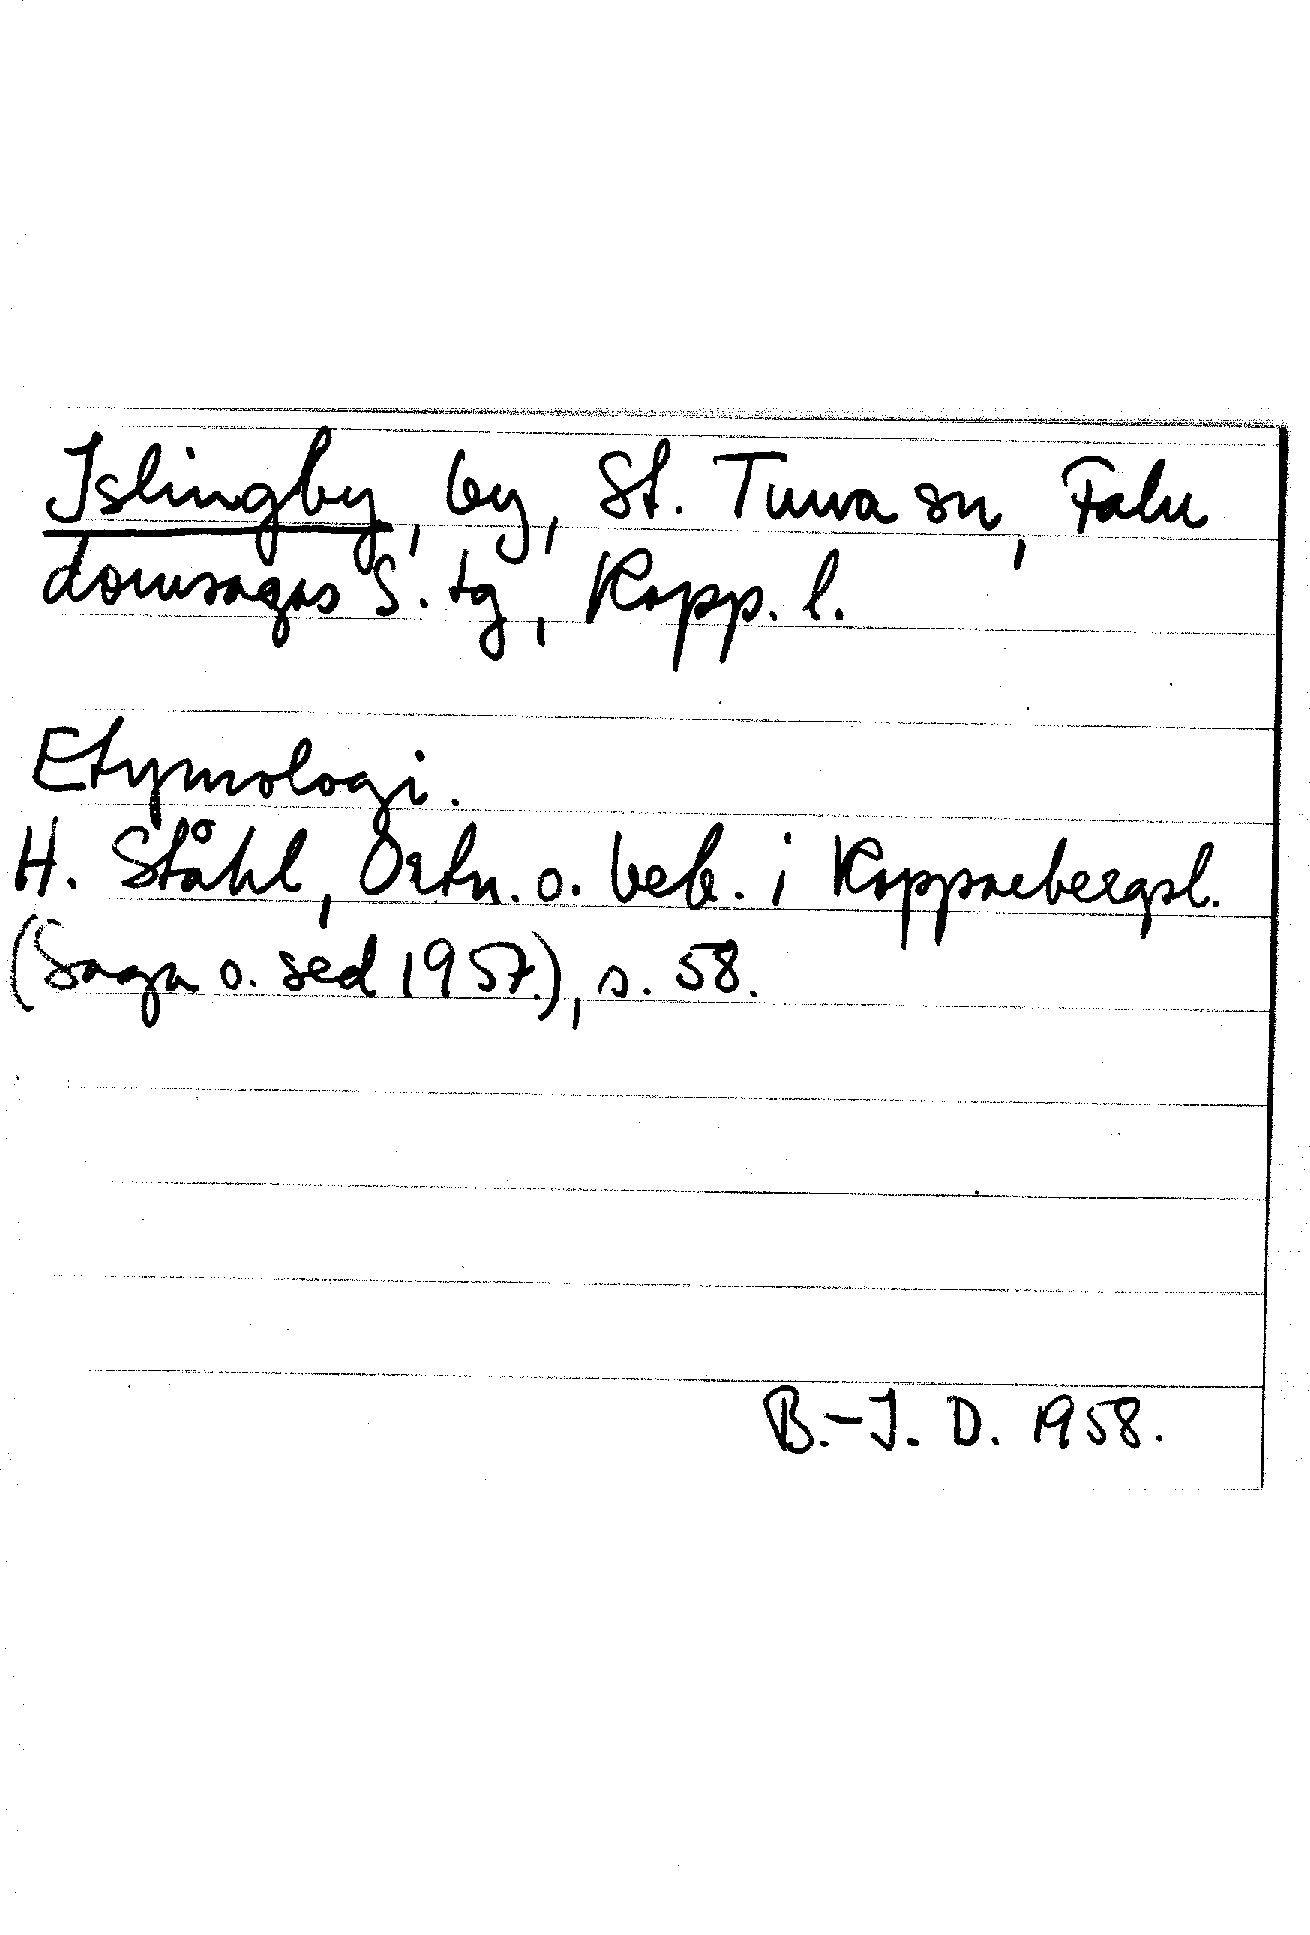 Islingby, by, St. Tuna sn, Falu
domsagas S. tg, Kopp. l.
Etymologi.
H. Ståhl, Ortn. o. beb. i Kopparbergsl.
(Saga o. sed 1957.), s. 58.
B.-I. D. 1958.